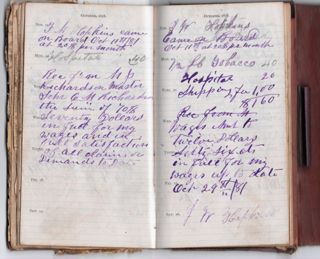 October, 1878.
J. W. Hopkins came
on Board Oct 11th/81
at 20$ per month
Hospital 40
Rec from M J
Richardson Master
John C
the sum of
Seventy Dollars
in full for my
wages and in
full satisfaction
of all claims or
Demands to Date
October, 1878.
J W Hopkins
Came on Board
Oct 11th at 20$ per month
Tobacco 40
Hospital 20
Shipping fee 1,00
$1,60
Rec from
wages
twelve Dollars
sixty six cts
in full for my
wages up to date
Oct 29th /81
J W Hopkins